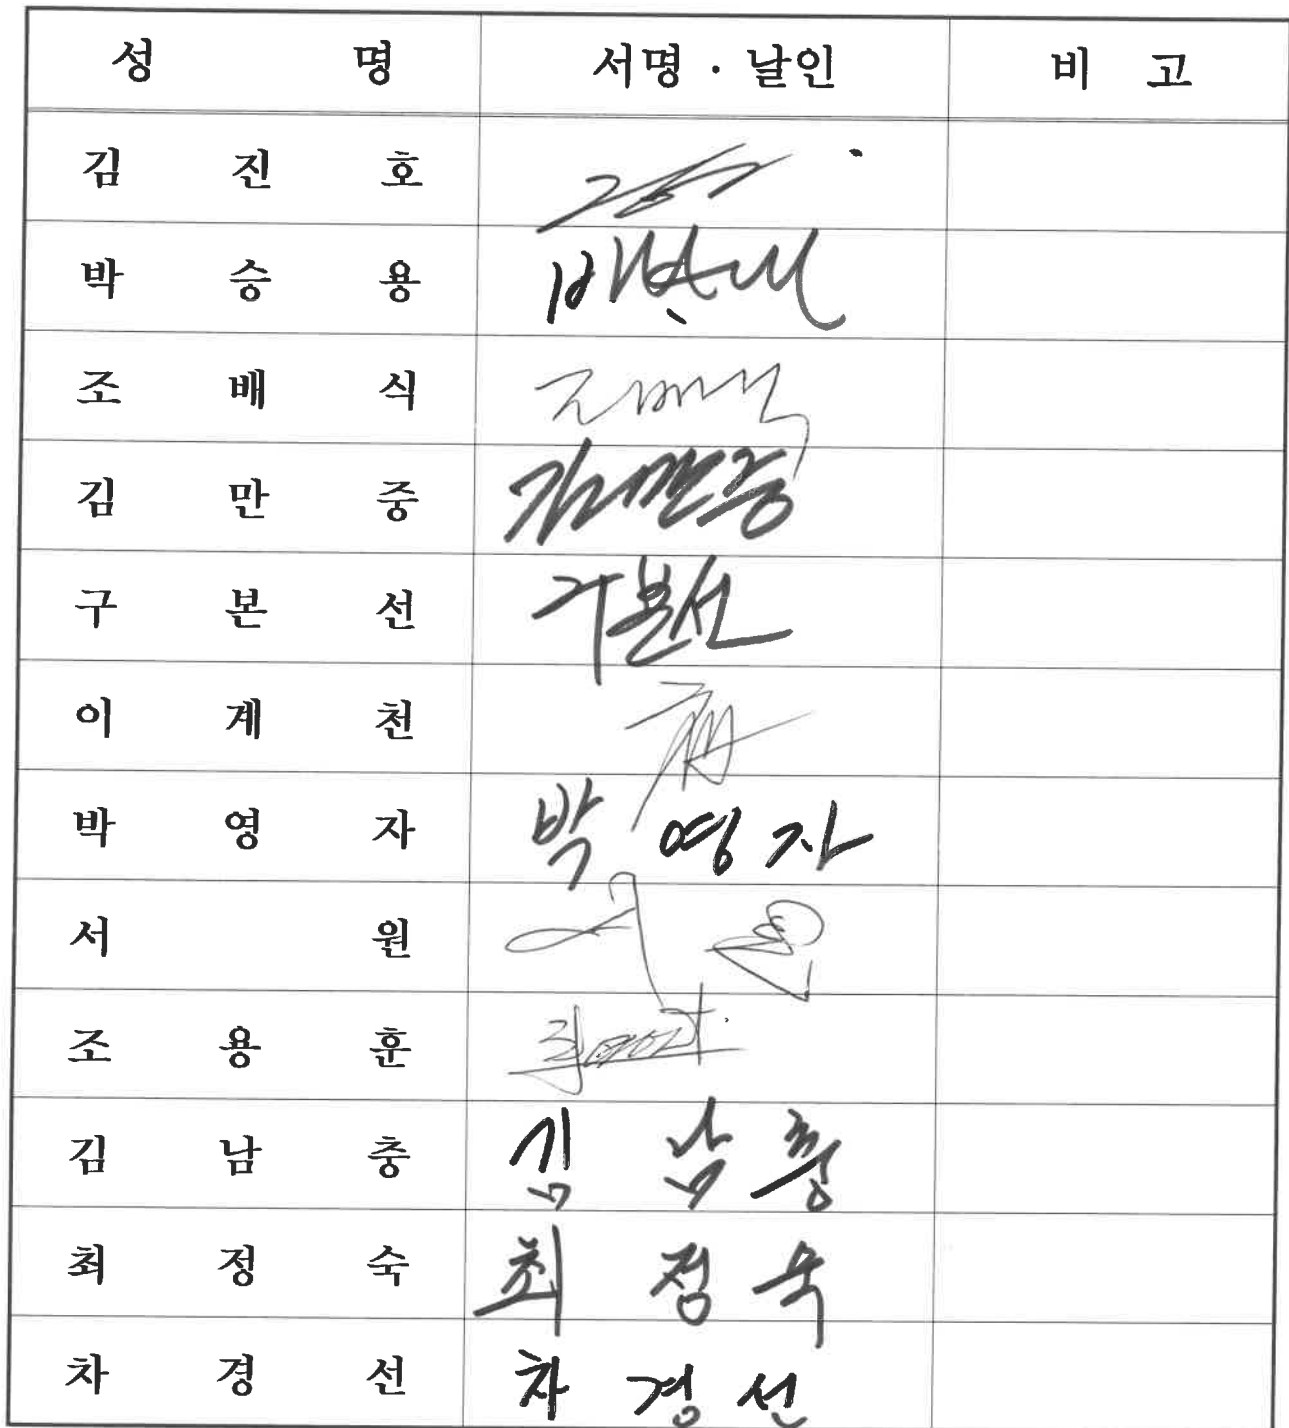 성 명 서명 · 날인 비 고
김 진 호
박 승 용
조 배 식
김 만 중 김만중
구 본 선 구본선
이 계 천
박 영 자 박 영 자
서 원 서 원
조 용 훈
김 남 충 김 남 충
최 정 숙 최 정 숙
차 경 선 차 경 선